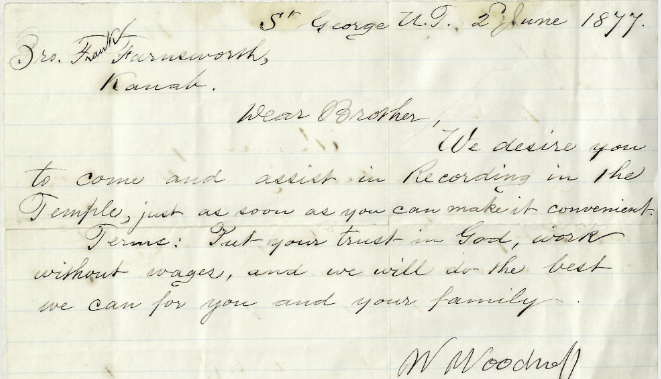 St George U.T. 2d June 1877.
Bro. Frank Farnsworth,
Kanab.
Dear Brother,
We desire you
to come and assist in Recording in the
Temple, just as soon as you can make it convenient.
Terms: Put your trust in God, work
without wages, and we will do the best
we can for you and your family.
W Woodruff